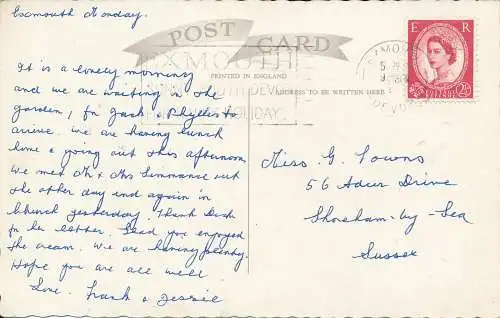 Exmouth Monday.
POST CARD
EXMOUTH
PRINTED IN ENGLAND
ADDRESS TO BE WRITTEN HERE
HOLIDAYS
E R
2½D
It is a lovely morning
and we are waiting in the
garden, for Jack & Phyllis to
arrive. We are having lunch
home & going out this afternoon.
We met Mr & Mrs Simmance out
the other day and again in
Church yesterday. Thank Dick
for his letter. Glad you enjoyed
the cream. We are having plenty.
Hope you are all well
Love. Frank & Jessie
Miss G. Towns
56 Adur Drive
Shoreham-by-Sea
Sussex